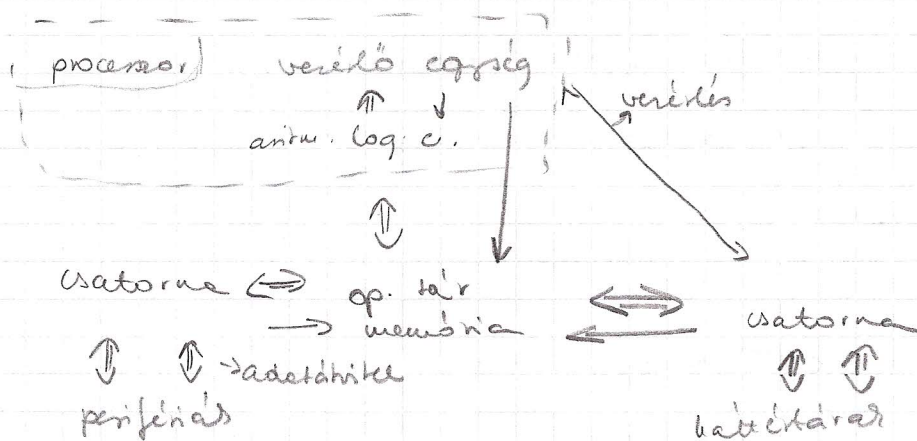 processor vezérlő egység
vezérlés
aritm. log. e.
csatorna op. tár
memória csatorna
adatátvitel
perifériás háttértárak